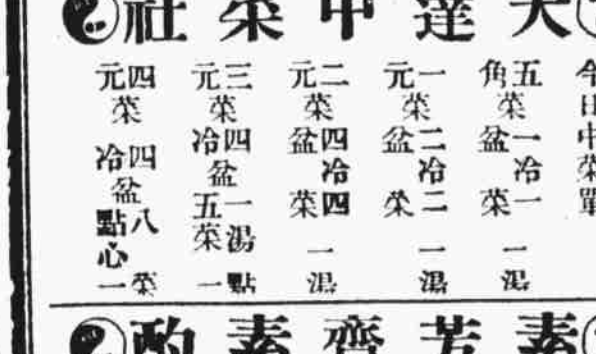 達中菜社
今日中菜單
五角菜 一冷盆 一菜 一湯
一元菜 二冷盆 二菜 一湯
二元菜 四冷盆 四菜 一湯
三元菜 四冷盆 五菜一湯一點
四元菜 四冷盆 八菜一點心
素芳齋素酌